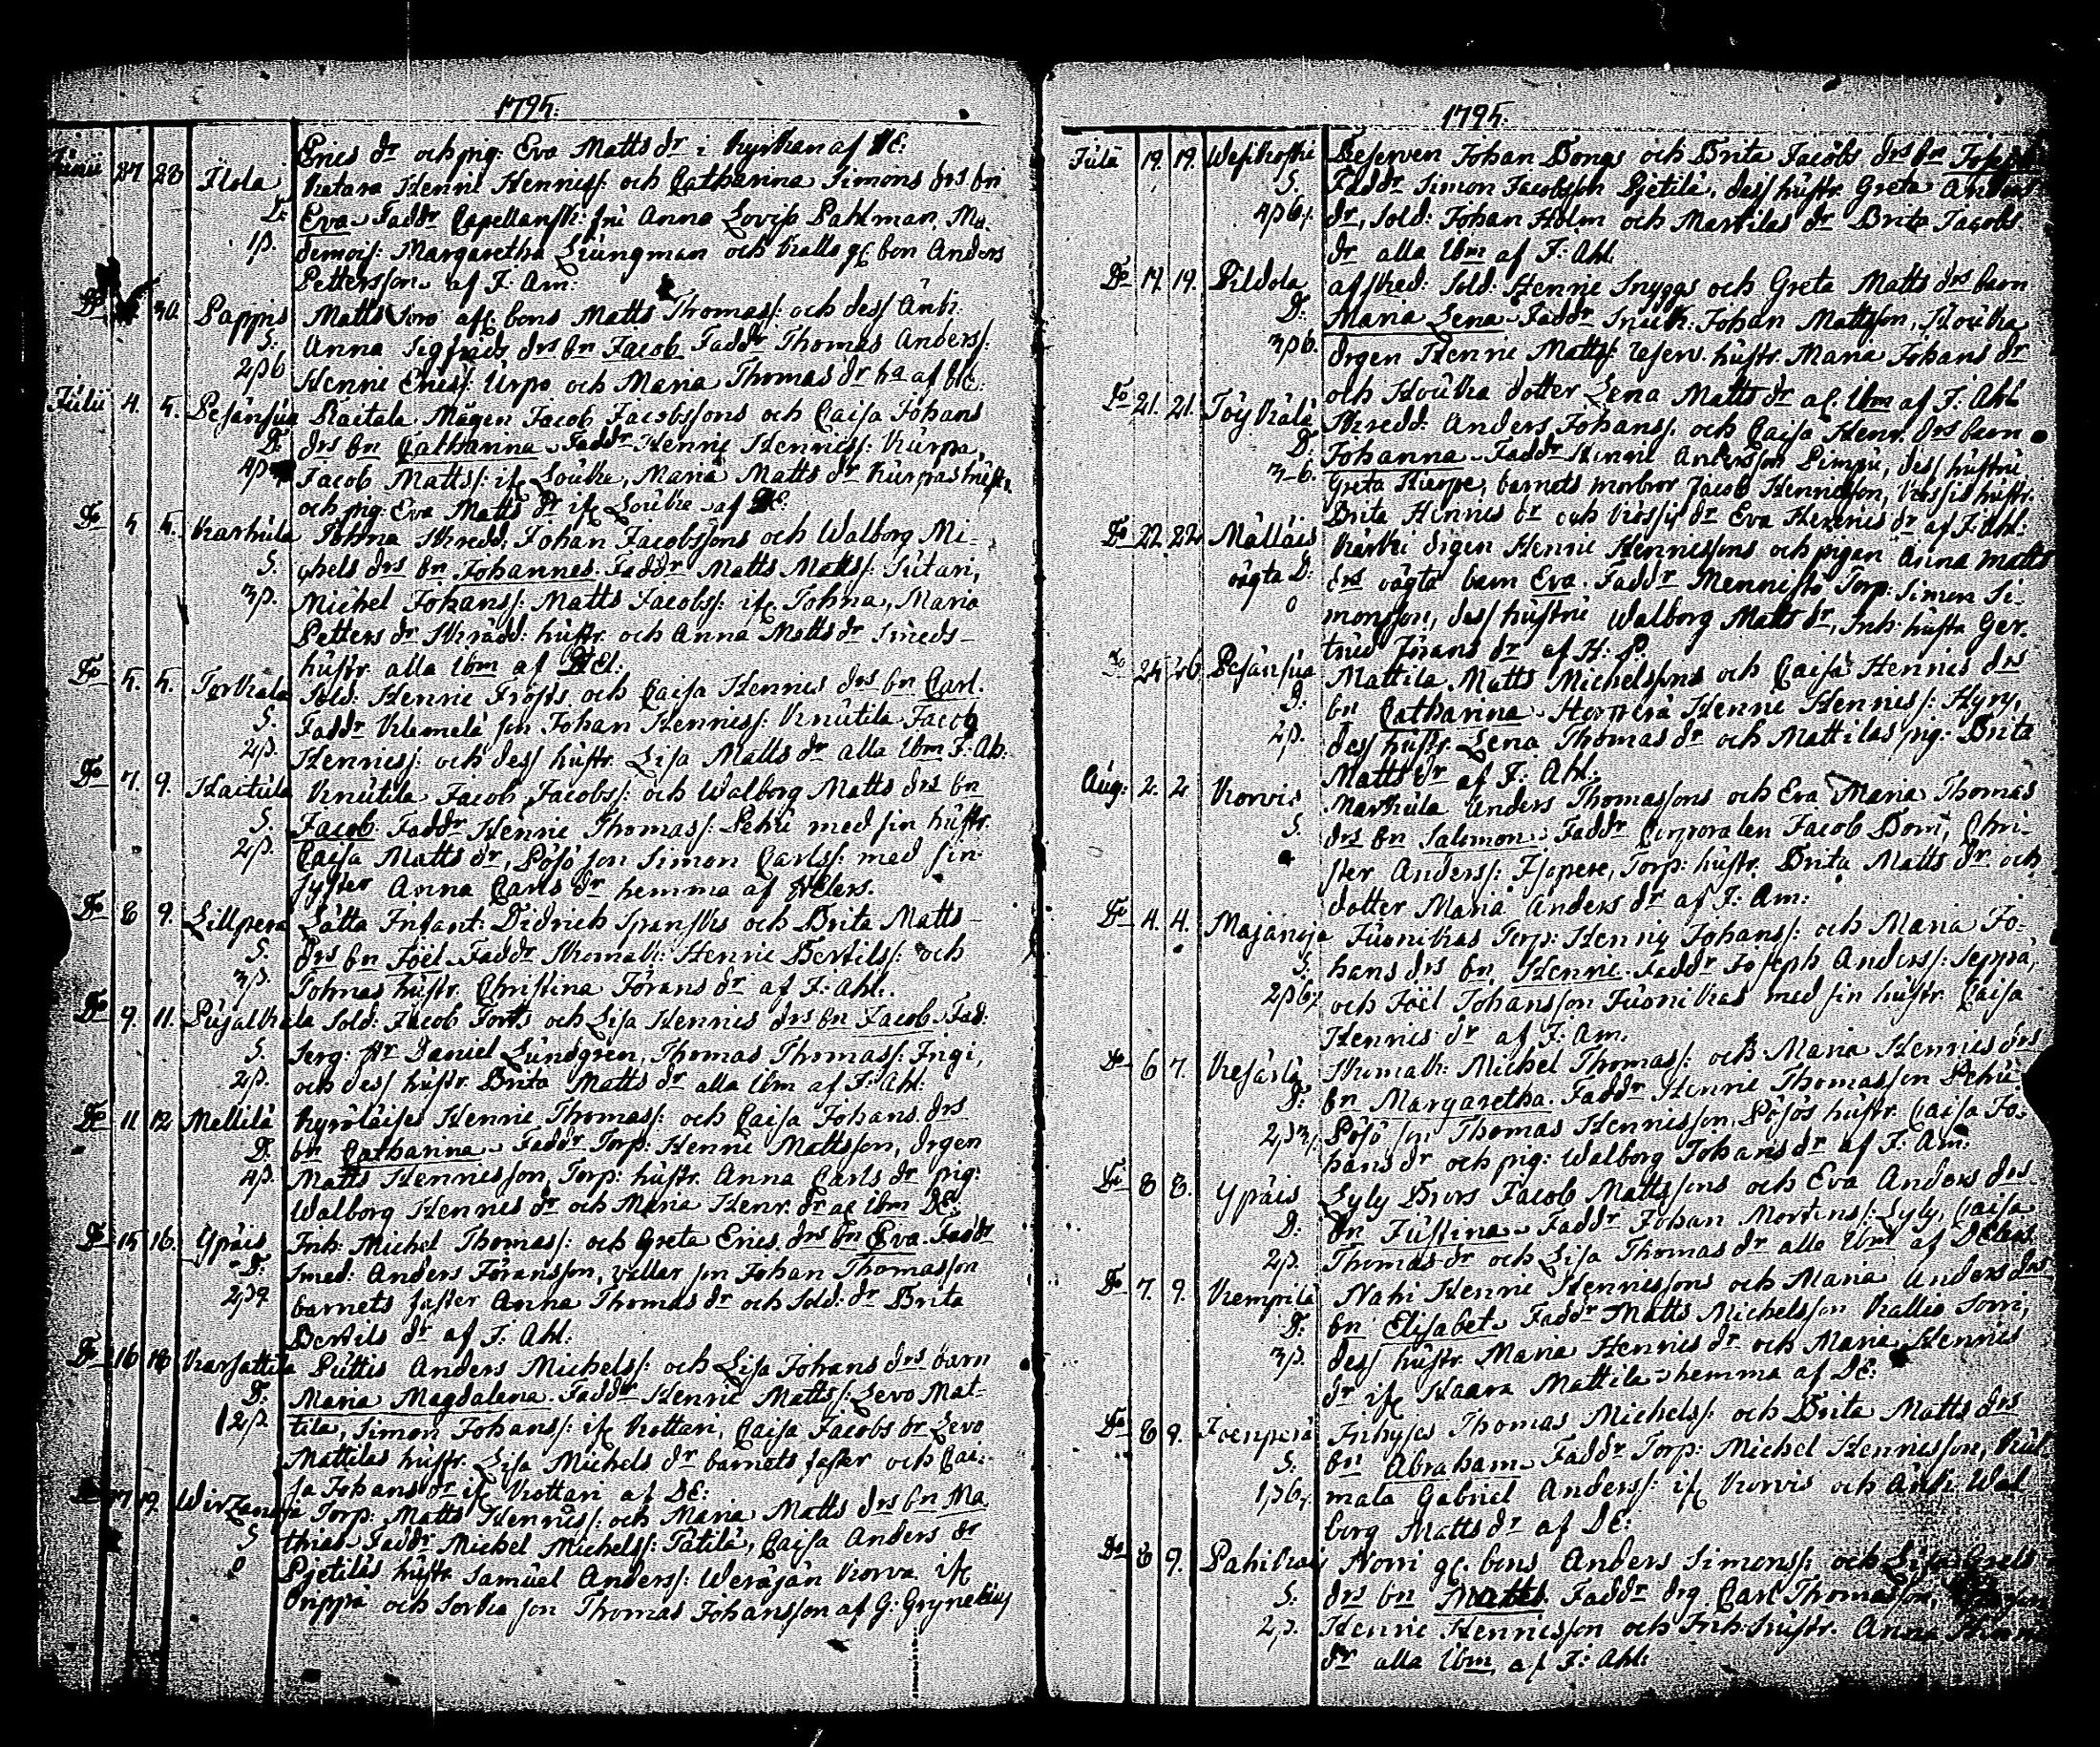 1795.
Erics dr och pig: Eva Matts dr i kyrkan af DE:
Junii 27 28 Ilola Ketara Henric Henricss: och Catharina Simons drs bn
D: Eva Faddr Capellansk: fru Anna Lovisa Pahlman, Ma-
1β. demois: Margaretha Liungman och Kalls gl. bon Anders
Pettersson af J: Am:
Do 30. Pappis Matts Soro afl. bons Matts Thomass: och dess Änk:
S. Anna Sigfrids drs bn Jacob Faddr Thomas Anderss:
2β6 Henric Ericss: Urpo och Maria Thomas dr ha af DE:
Julii 4. 5. Pesänsua Raitala Mågen Jacob Jacobssons och Caisa Johans
D: drs bn Catharina Faddr Henric Henricss: Kurpa,
4β Jacob Mattss: ifr Louke, Maria Matts dr Kurpas hustr.
och pig: Eva Matts dr ifr Louke af DE:
Do 5 5. Karhula Tohna Skredd. Johan Jacobssons och Walborg Mi-
S. chels drs bn Johannes. Faddr Matts Mattss: Sutari,
3β. Michel Johanss: Matts Jacobss: ifr Tohna, Maria
Petters dr Skrädd: hustr. och Anna Matts dr Smeds-
hustr. alla ibm af DEl:
Do 5. 5. Torkala Sold: Henric Frosts och Caisa Henrics drs bn Carl.
S. Faddr Klemelä son Johan Henricss: Knutila Jacob
2β. Henricss: och dess hustr. Lisa Matts dr alla ibm J: Ah:
Do 7. 9. Haitula Knutila Jacob Jacobss: och Walborg Matts drs bn
S. Jacob. Faddr Henric Thomass: Pehu med sin hustr.
2β. Caisa Matts dr, Pösö son Simon Carlss: med sin
syster Anna Carls dr hemma af DElers.
Do 8 9. Lillperä Lätta Infant: Didrich Spansks och Brita Matts
S. drs bn Joël Faddr Skomak: Henric Bertilss: och
3β. Tohnas hustr. Christina Jörans dr af J: Ahl:
Do 9. 11. Pujalkala Sold: Jacob Torts och Lisa Henrics drs bn Jacob Fad:
S. Serg: Hr Daniel Lundgren, Thomas Thomass: Ingi,
2β. och dess hustr. Brita Matts dr alla ibm af J: Ahl:
Do 11 12 Mellilä Kyröläises Henric Thomass: och Caisa Johans drs
D. bn Catharina Faddr Torp: Henric Mattsson, drgen
4β. Matts Henricsson, Torp: hustr. Anna Carls dr pig:
Walborg Henrics dr och Maria Henr. dr al ibm DE:
Do 15 16 Ypäis Inh: Michel Thomass: och Greta Erics drs bn Eva. Faddr
D. Smed: Anders Jöransson, vallar son Johan Thomasson
2β barnets faster Anna Thomas dr och Sold: dr Brita
Bertils dr af J: Ahl:
Do 16 18 Karsattila Puttis Anders Michelss: och Lisa Johans drs barn
D. Maria Magdalena. Faddr Henric Mattss: Levo Mat-
12β. tila, Simon Johanss: ifr Kottari, Caisa Jacobs dr Levo
Mattilas hustr. Lisa Michels dr barnets faster och Cai-
sa Johans dr ifr Kottari af DE:
17 19. Wirzanoja Torp: Matts Henricss: och Maria Matts drs bn Ma-
S thias Faddr Michel Michelss: Tätilä, Caisa Anders dr
0 Pjetiläs hustr Samuel Anderss: Weräjän Korva ifr
och Sorka son Thomas Johansson af G: Grynelius
1795.
Julii 19. 19. Weskoski Reserven Johan Bongs och Brita Jacobs drs bn Joseph
S. Faddr Simon Jacobsson Pjetilä, dess hustr. Greta Anders
4β6. dr, Sold: Johan Holm och Martilas dr Brita Jacobs
dr alla ibm af J: Ahl.
Do 19. 19. Pildola afsked: Sold: Henric Snyggs och Greta Matts drs barn
D: Maria Lena Faddr Snick: Johan Mattsson, Kouka
3β6. drgen Henric Mattss: reserv. hustr. Maria Johans dr
och Kouka dotter Lena Matts dr al. ibm af J: Ahl
Do 21. 21. Töykälä Skredd: Anders Johanss: och Caisa Henr. drs barn
D Johanna Faddr Henric Andersson Pimpu, dess hustru
3-6. Greta barnets morbror Jacob Henricsson, hustr.
Brita Henrics dr och dr Eva Henrics dr af J: Ahl:
Do 22. 22. Mälläis drgen Henric Henricssons och pigan Anna Matts
oägta D: drs oägta barn Eva. Faddr Mennistö Torp: Simon Si-
0 monsson, dess hustru Walborg Matts dr, Inh: hustr Ger-
trud Jörans dr af H: P.
24 26 Pesänsua Mattila Matts Michelssons och Caisa Henrics drs
D. bn Catharina Henric Henricss: Hyry,
2β. dess hustr. Lena Thomas dr och Mattilas pig: Brita
Matts dr af J: Ahl:
Aug: 2. 2 Korvis Markula Anders Thomassons och Eva Maria Thomas
S. drs bn Salomon. Faddr Corporalen Jacob Dom, Chri-
ster Anderss: Isopere, Torp: hustr. Brita Matts dr och
dotter Maria Anders dr af J: Am:
Do 4. 4. Majanoja Juonikas Torp: Henric Johanss: och Maria Jo-
S. hans drs bn Henric. Faddr Joseph Anderss: Seppä,
2β6. och Joël Johansson Juonikas med sin hustr. Caisa
Henrics dr af J: Am.
Do 6 7. Kesärlä Skomak: Michel Thomass: och Maria Henrics drs
D: bn Margaretha. Faddr Henric Thomasson Pehu
2β3. Pösö son Thomas Henricsson, Pösös hustr. Caisa Jo-
hans dr och pig: Walborg Johans dr af J: Am:
Do 8 8. Ypäis Lyly Brors Jacob Mattssons och Eva Anders drs
D. bn Justina Faddr Johan Mortens: Lyly, Caisa
2β. Thomas dr och Lisa Thomas dr alla ibm af DElers
Do 7. 9. Kempilä Nahi Henric Henricssons och Maria Anders drs
D: bn Elisabet Faddr Matts Michelsson Kallio Somi,
3β. dess hustr. Maria Henrics dr och Maria Henrics
dr ifr Haara Mattila hemma af DE:
Do 8 9. Joenperä Inhyses Thomas Michelss: och Brita Matts drs
S. bn Abraham Faddr Torp: Michel Henricsson, Kul-
1β6. mala Gabriel Anderss: ifr Korvis och Änk: Wal
borg Matts dr af DE:
Do 8 9. Pahikais Nomi gl. bons Anders Simonss: och Lisa Grels
S. drs bn Matts Faddr drg. Carl Thomasson,
2β. Henric Henricsson och Inh: hustr. Anna
dr alla ibm, af J: Ahl: